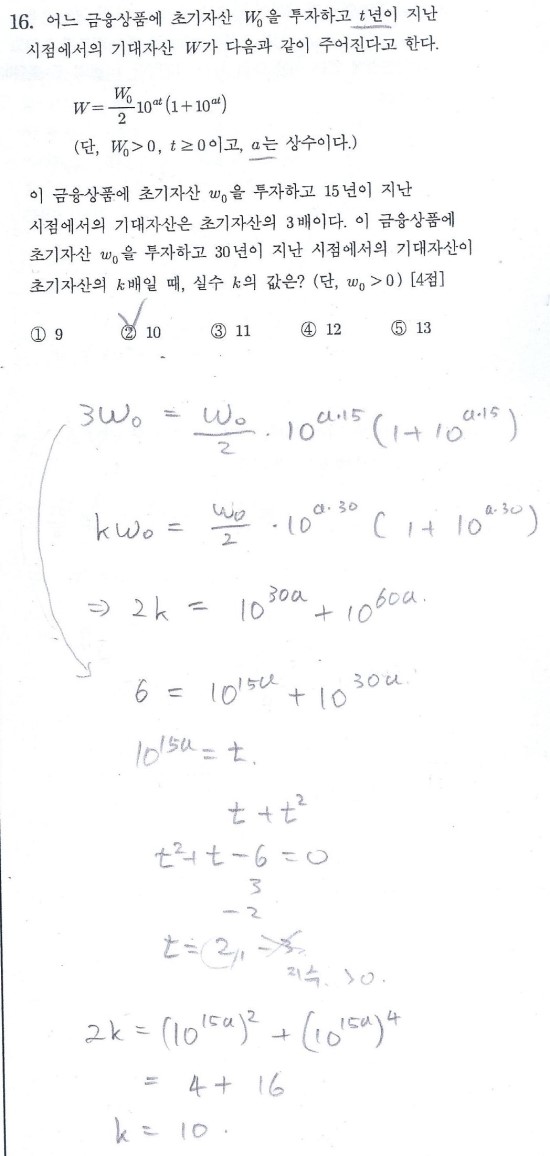 16. 어느 금융상품에 초기자산 W₀을 투자하고 t년이 지난
시점에서의 기대자산 W가 다음과 같이 주어진다고 한다.
W = W₀/2 10^{at}(1+10^{at})
(단, W₀>0, t≥0이고, a는 상수이다.)
이 금융상품에 초기자산 w₀을 투자하고 15년이 지난
시점에서의 기대자산은 초기자산의 3배이다. 이 금융상품에
초기자산 w₀을 투자하고 30년이 지난 시점에서의 기대자산이
초기자산의 k배일 때, 실수 k의 값은? (단, w₀>0) [4점]
① 9 ② 10 ③ 11 ④ 12 ⑤ 13
3w₀ = w₀/2 · 10^{a·15} (1+10^{a·15})
kw₀ = w₀/2 · 10^{a·30} (1+10^{a·30})
⇒ 2k = 10^{30a} + 10^{60a}.
6 = 10^{15a} + 10^{30a}.
10^{15a} = t.
t + t²
t²+t-6=0
3
-2
t = 2,, -3
지수 >0.
2k = (10^{15a})² + (10^{15a})⁴
= 4 + 16
k = 10.